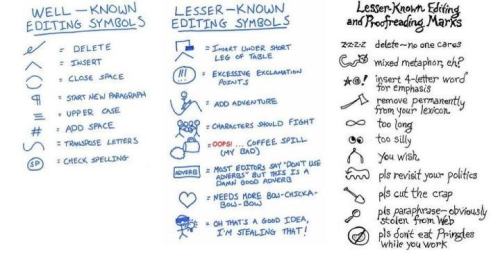 WELL-KNOWN
EDITING SYMBOLS
= DELETE
= INSERT
= CLOSE SPACE
¶ = START NEW PARAGRAPH
≡ = UPPER CASE
# = ADD SPACE
= TRANSPOSE LETTERS
SP = CHECK SPELLING
LESSER-KNOWN
EDITING SYMBOLS
= INSERT UNDER SHORT
LEG OF TABLE
!!! = EXCESSIVE EXCLAMATION
POINTS
= ADD ADVENTURE
= CHARACTERS SHOULD FIGHT
= OOPS! ... COFFEE SPILL
(MY BAD)
ADVERB = MOST EDITORS SAY "DON'T USE
ADVERBS" BUT THIS IS A
DAMN GOOD ADVERB
= NEEDS MORE BOW-CHICKA-
BOW-BOW
= OH THAT'S A GOOD IDEA,
I'M STEALING THAT!
Lesser-Known Editing
and Proofreading Marks
z-z-z-z delete~no one cares
mixed metaphor, eh?
*@! insert 4-letter word
for emphasis
remove permanently
from your lexicon.
∞ too long
too silly
you wish
pls revisit your politics
pls cut the crap
pls paraphrase—obviously
stolen from Web
pls don't eat Pringles
while you work